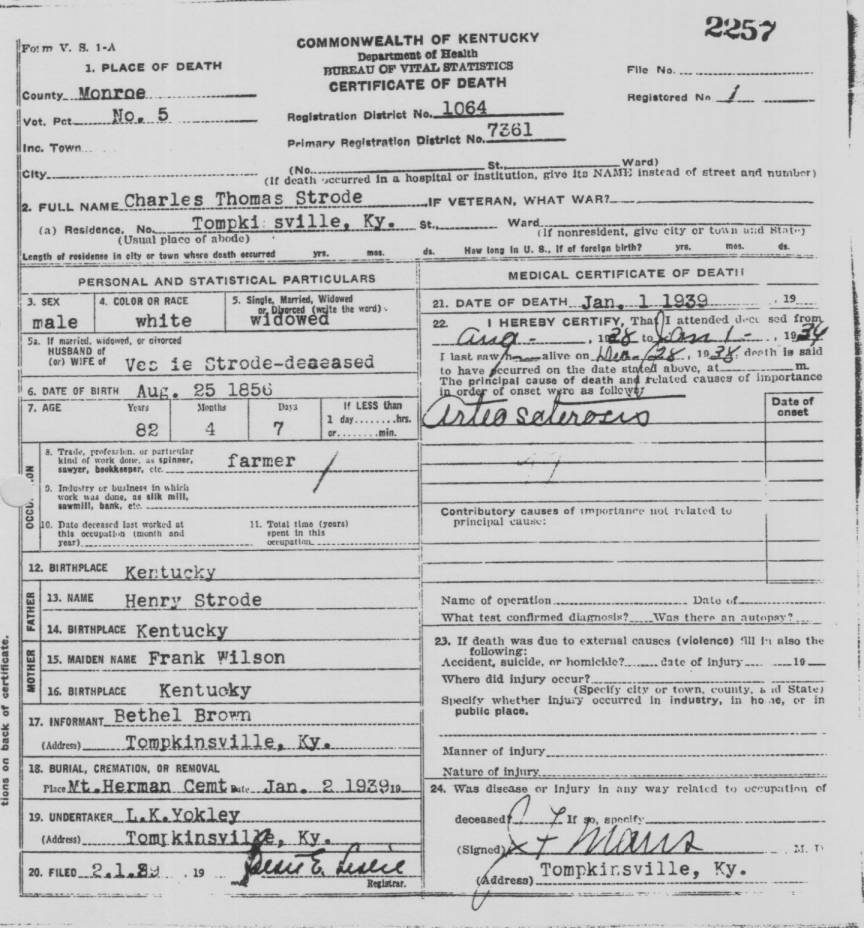 2257
Form V. S. 1-A
COMMONWEALTH OF KENTUCKY
Department of Health
BUREAU OF VITAL STATISTICS
CERTIFICATE OF DEATH
1. PLACE OF DEATH
File No.
County Monroe
Registered No 1
Vot. Pct. No. 5
Registration District No. 1064
Primary Registration District No. 7361
Inc. Town
City (No. St., Ward)
(If death occurred in a hospital or institution, give its NAME instead of street and number)
2. FULL NAME Charles Thomas Strode IF VETERAN, WHAT WAR?
(a) Residence. No. Tompki sville, Ky. St., Ward
(Usual place of abode) (If nonresident, give city or town and State)
Length of residence in city or town where death occurred yrs. mos. ds. How long in U. S., if of foreign birth? yrs. mos. ds.
PERSONAL AND STATISTICAL PARTICULARS
3. SEX 4. COLOR OR RACE 5. Single, Married, Widowed
or Divorced (write the word)
male white widowed
5a. If married, widowed, or divorced
HUSBAND of
(or) WIFE of Strode-deceased
6. DATE OF BIRTH Aug. 25 1856
7. AGE Years Months Days If LESS than
1 day hrs.
or min.
82 4 7
OCCUPATION
8. Trade, profession, or particular
kind of work done, as spinner, farmer
sawyer, bookkeeper, etc.
9. Industry or business in which
work was done, as silk mill,
sawmill, bank, etc.
10. Date deceased last worked at 11. Total time (years)
this occupation (month and spent in this
year) occupation
12. BIRTHPLACE Kentucky
FATHER
13. NAME Henry Strode
14. BIRTHPLACE Kentucky
MOTHER
15. MAIDEN NAME Frank Wilson
16. BIRTHPLACE Kentucky
17. INFORMANT Bethel Brown
(Address) Tompkinsville, Ky.
18. BURIAL, CREMATION, OR REMOVAL
Place Mt. Herman Cemt Date Jan. 2 1939 19
19. UNDERTAKER L.K.Yokley
(Address) Tompkinsville, Ky.
20. FILED 2.1.39 19
Registrar.
MEDICAL CERTIFICATE OF DEATH
21. DATE OF DEATH Jan. 1 1939 , 19
22. I HEREBY CERTIFY, That I attended deceased from
Aug - , 1938 to Jan 1 - , 1939
I last saw h alive on Dec. 28, 1938, death is said
to have occurred on the date stated above, at m.
The principal cause of death and related causes of importance
in order of onset were as follows:
Date of
onset
Arteo sclerosis
Contributory causes of importance not related to
principal cause:
Name of operation Date of
What test confirmed diagnosis? Was there an autopsy?
23. If death was due to external causes (violence) fill in also the
following:
Accident, suicide, or homicide? date of injury 19
Where did injury occur?
(Specify city or town, county, and State)
Specify whether injury occurred in industry, in home, or in
public place.
Manner of injury
Nature of injury
24. Was disease or injury in any way related to occupation of
deceased? If so, specify
(Signed) M. D
(Address) Tompkinsville, Ky.
tions on back of certificate.